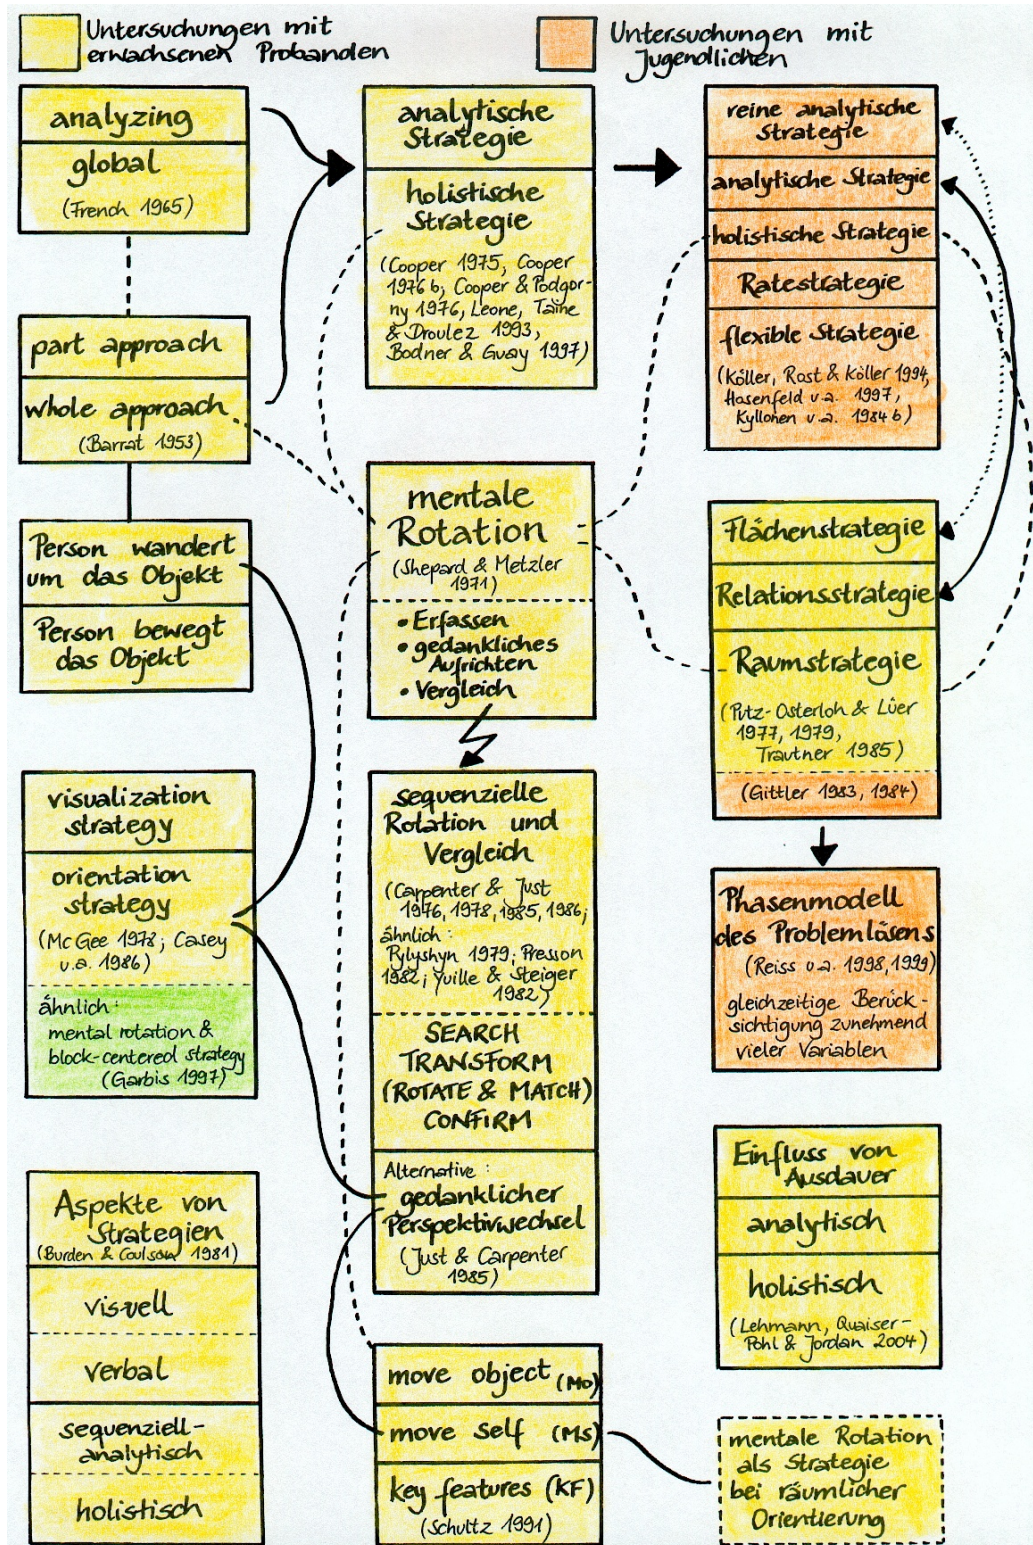 Untersuchungen mit
erwachsenen Probanden
Untersuchungen mit
Jugendlichen
analyzing
global
(French 1965)
part approach
whole approach
(Barrat 1953)
Person wandert
um das Objekt
Person bewegt
das Objekt
visualization
strategy
orientation
strategy
(Mc Gee 1978; Casey
u.a. 1986)
ähnlich:
mental rotation &
block-centered strategy
(Garbis 1997)
Aspekte von
Strategien
(Burden & Coulson 1981)
visuell
verbal
sequenziell-
analytisch
holistisch
analytische
Strategie
holistische
Strategie
(Cooper 1975, Cooper
1976 b; Cooper & Podgor-
ny 1976, Leone, Taine
& Droulez 1993,
Bodner & Guay 1997)
mentale
Rotation
(Shepard & Metzler
1971)
• Erfassen
• gedankliches
Aufrichten
• Vergleich
sequenzielle
Rotation und
Vergleich
(Carpenter & Just
1976, 1978, 1985, 1986;
ähnlich:
Pylyshyn 1979; Presson
1982; Yuille & Steiger
1982)
SEARCH
TRANSFORM
(ROTATE & MATCH)
CONFIRM
Alternative:
gedanklicher
Perspektivwechsel
(Just & Carpenter
1985)
move object (MO)
move self (MS)
key features (KF)
(Schultz 1991)
reine analytische
Strategie
analytische Strategie
holistische Strategie
Ratestrategie
flexible Strategie
(Köller, Rost & Köller 1994,
Hasenfeld u.a. 1997,
Kyllonen u.a. 1984 b)
Flächenstrategie
Relationsstrategie
Raumstrategie
(Putz-Osterloh & Lüer
1977, 1979,
Trautner 1985)
(Gittler 1983, 1984)
Phasenmodell
des Problemlösens
(Reiss u.a. 1998, 1999)
gleichzeitige Berück-
sichtigung zunehmend
vieler Variablen
Einfluss von
Ausdauer
analytisch
holistisch
(Lehmann, Quaiser-
Pohl & Jordan 2004)
mentale Rotation
als Strategie
bei räumlicher
Orientierung